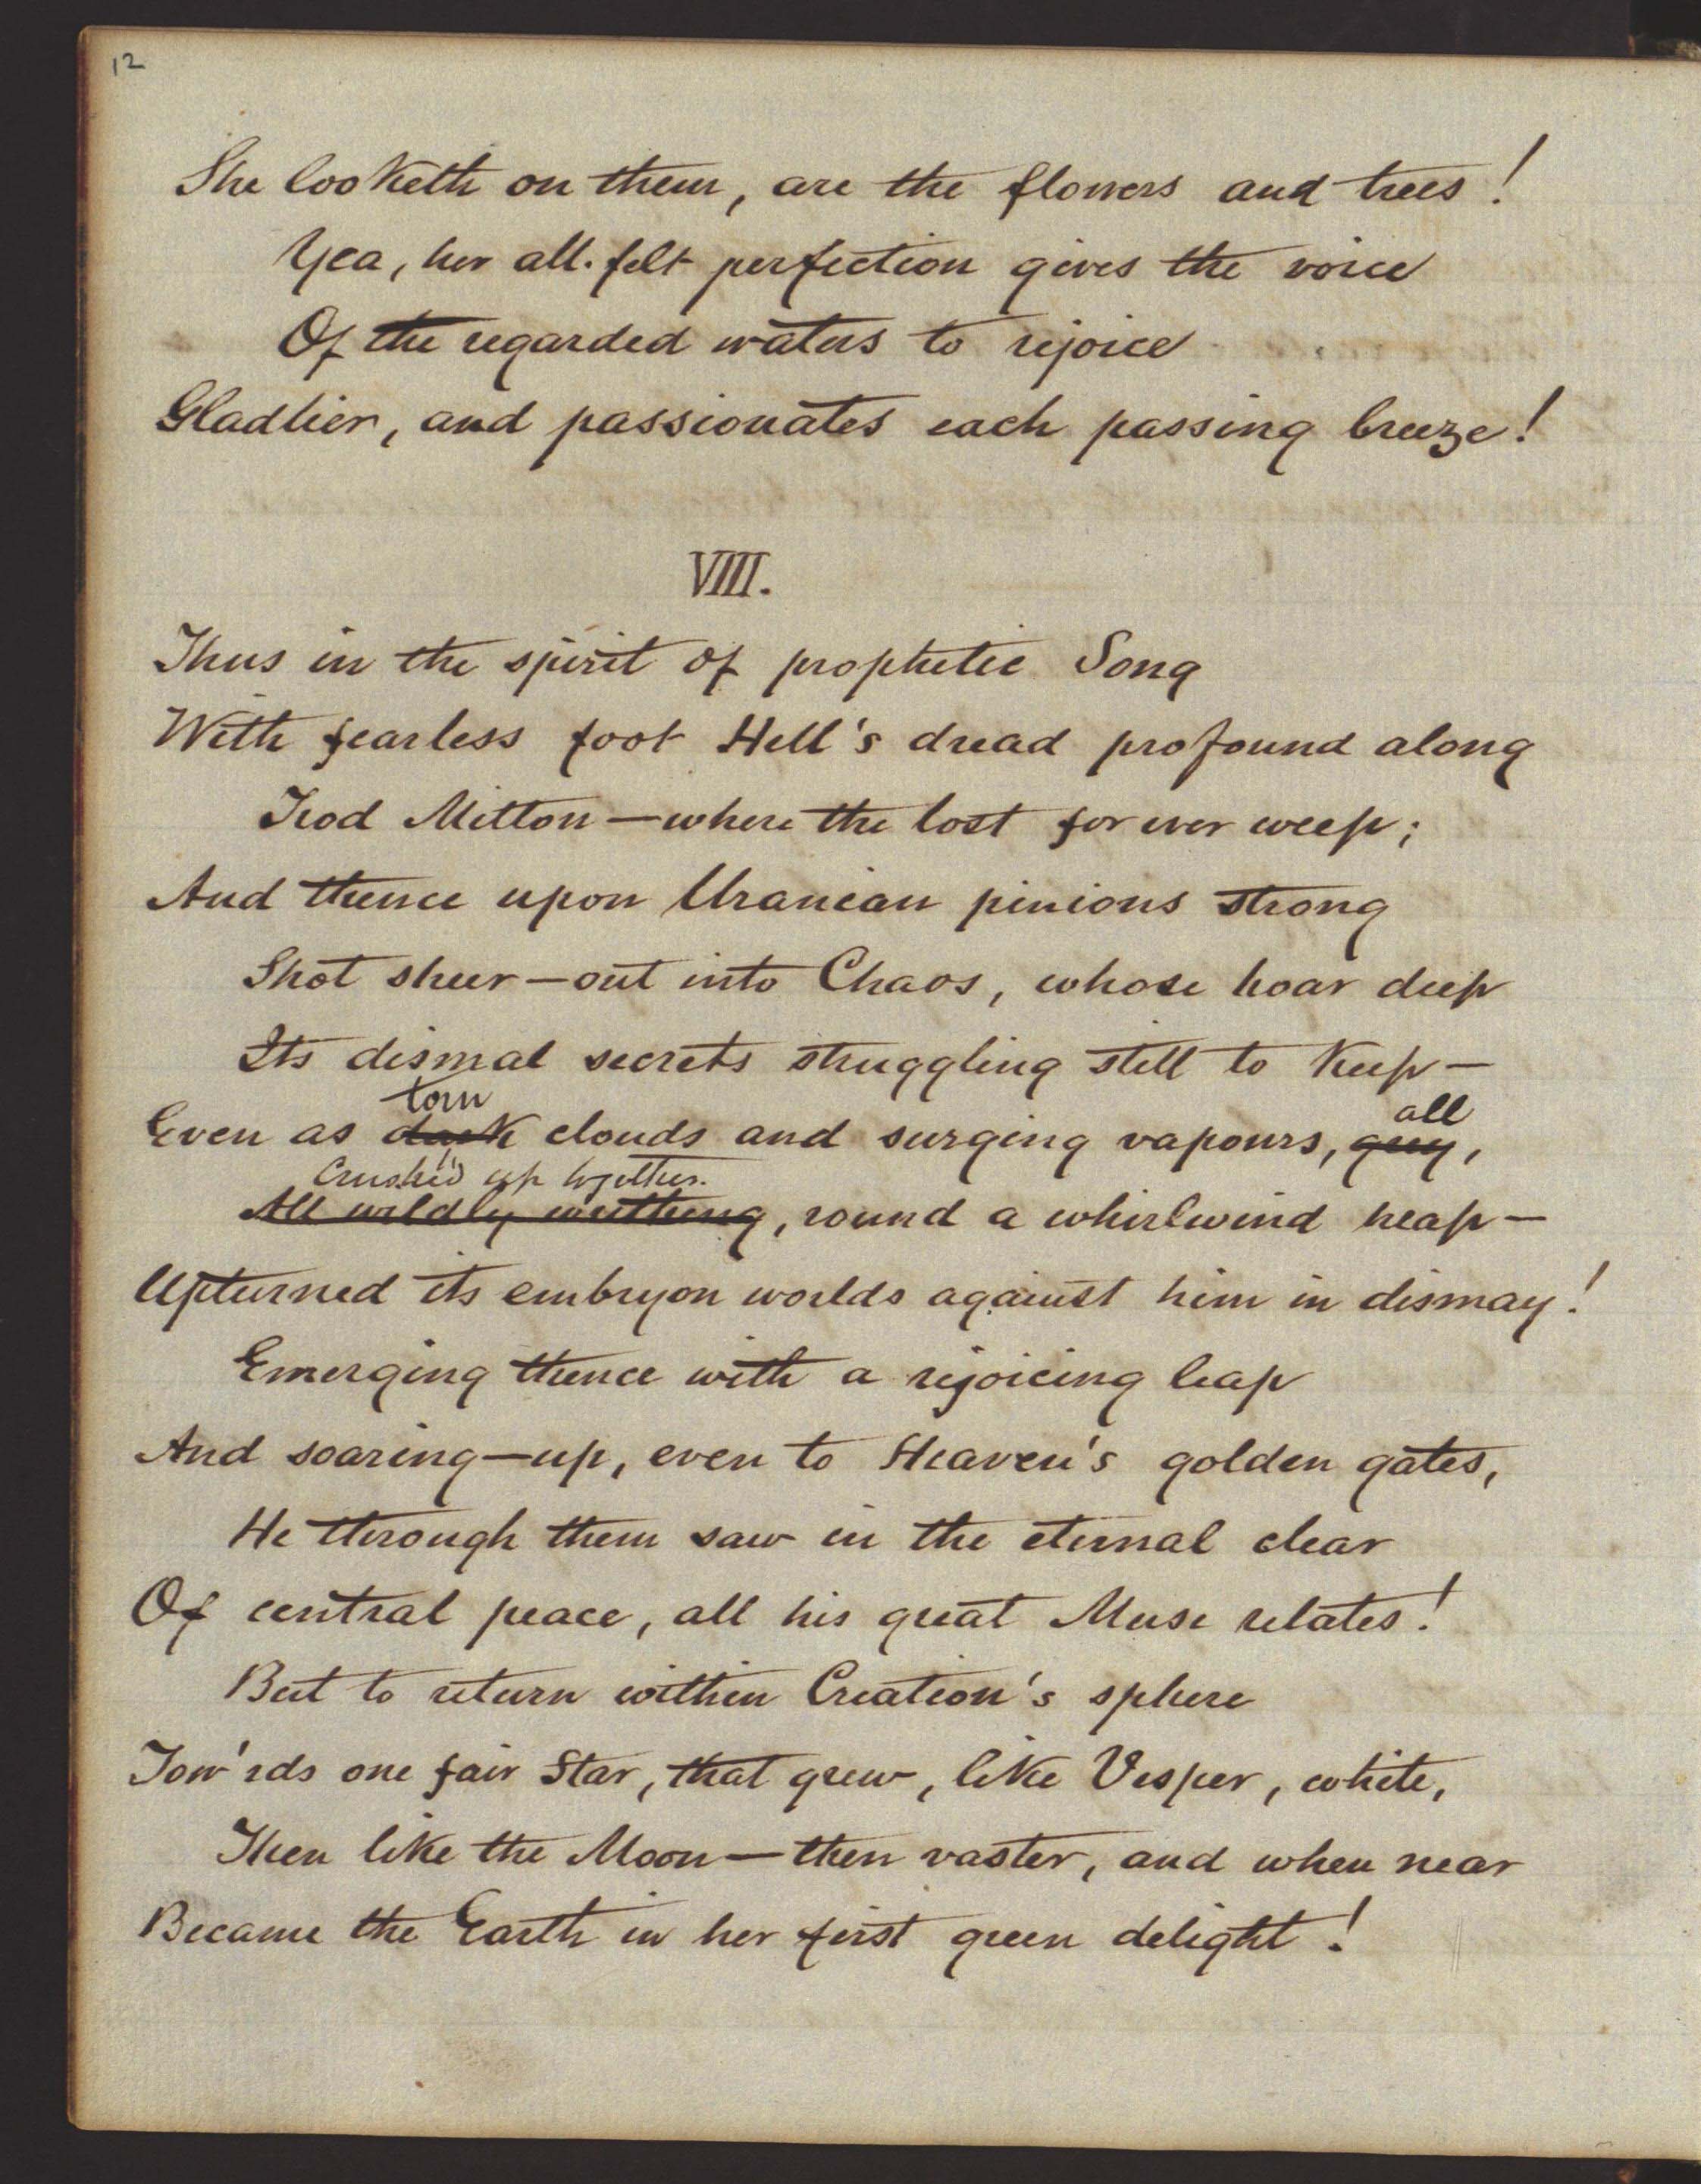 12
She looketh on them, are the flowers and trees!
Yea, her all-felt perfection gives the voice
Of the regarded waters to rejoice
Gladlier, and passionates each passing breeze!
VIII.
Thus in the spirit of prophetic Song
With fearless foot Hell's dread profound along
Trod Milton—where the lost for ever weep;
And thence upon Uranian pinions strong
Shot sheer—out into Chaos, whose hoar deep
Its dismal secrets struggling still to keep—
torn all
Even as dark clouds and surging vapours, grey,
Crush'd up together.
All wildly writhing, round a whirlwind heap—
Upturned its embryon worlds against him in dismay!
Emerging thence with a rejoicing leap
And soaring—up, even to Heaven's golden gates,
He through them saw in the eternal clear
Of central peace, all his great Muse relates!
But to return within Creation's sphere
Tow'rds one fair Star, that grew, like Vesper, white,
Then like the Moon—then vaster, and when near
Became the Earth in her first green delight!